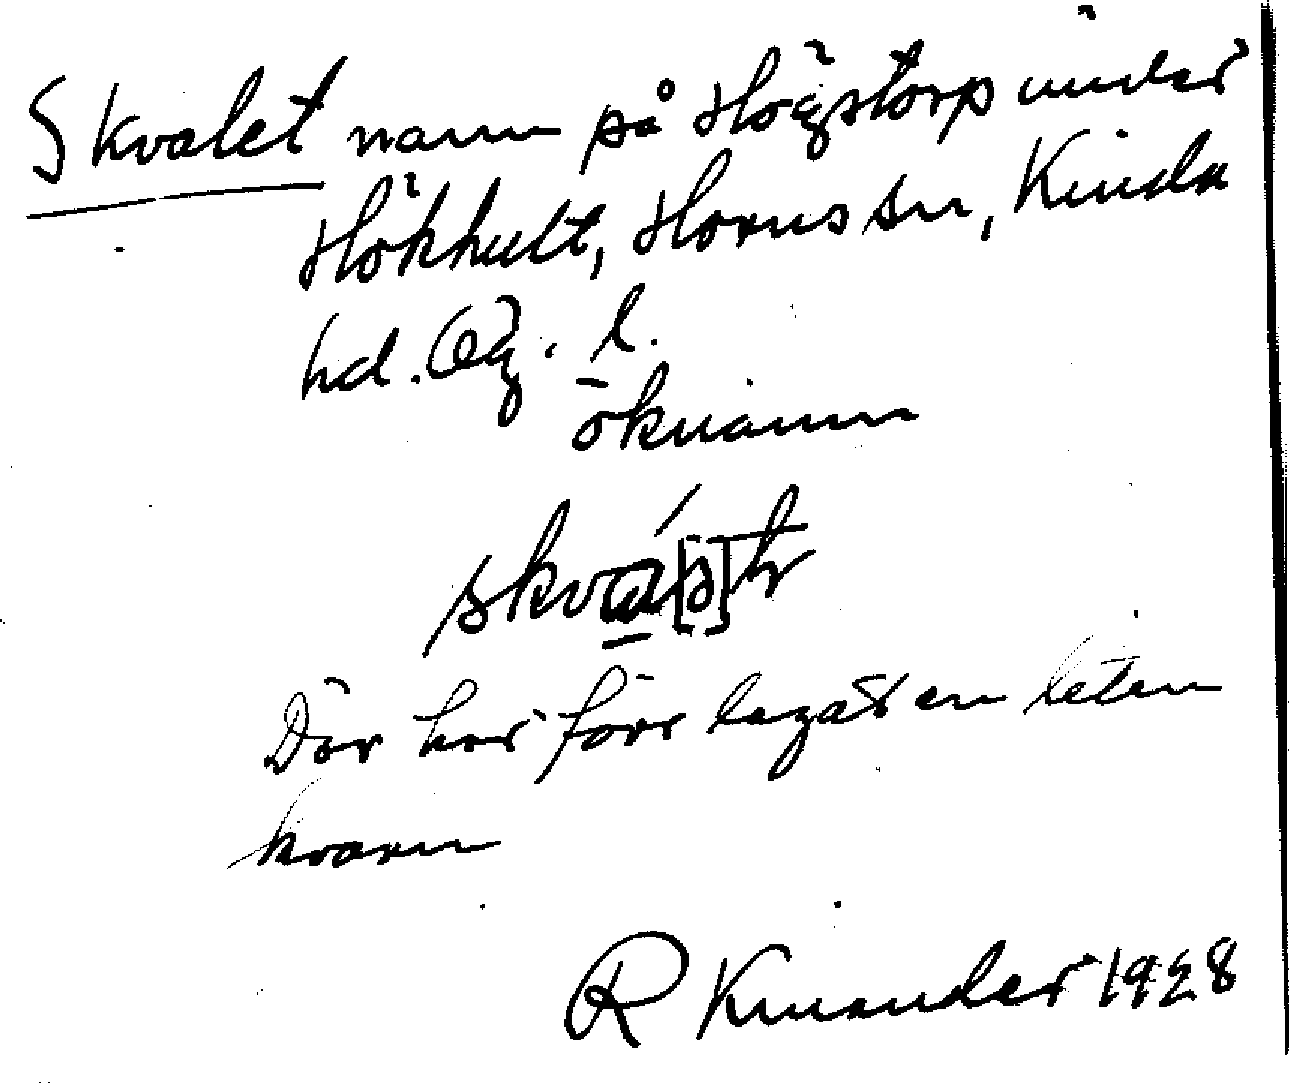 Skvalet namn på Högstorp under
Hökhult, Horns sn, Kinda
hd. Ög. l.
öknamn
Där har förr legat en liten
kvarn
R Kinander 1928